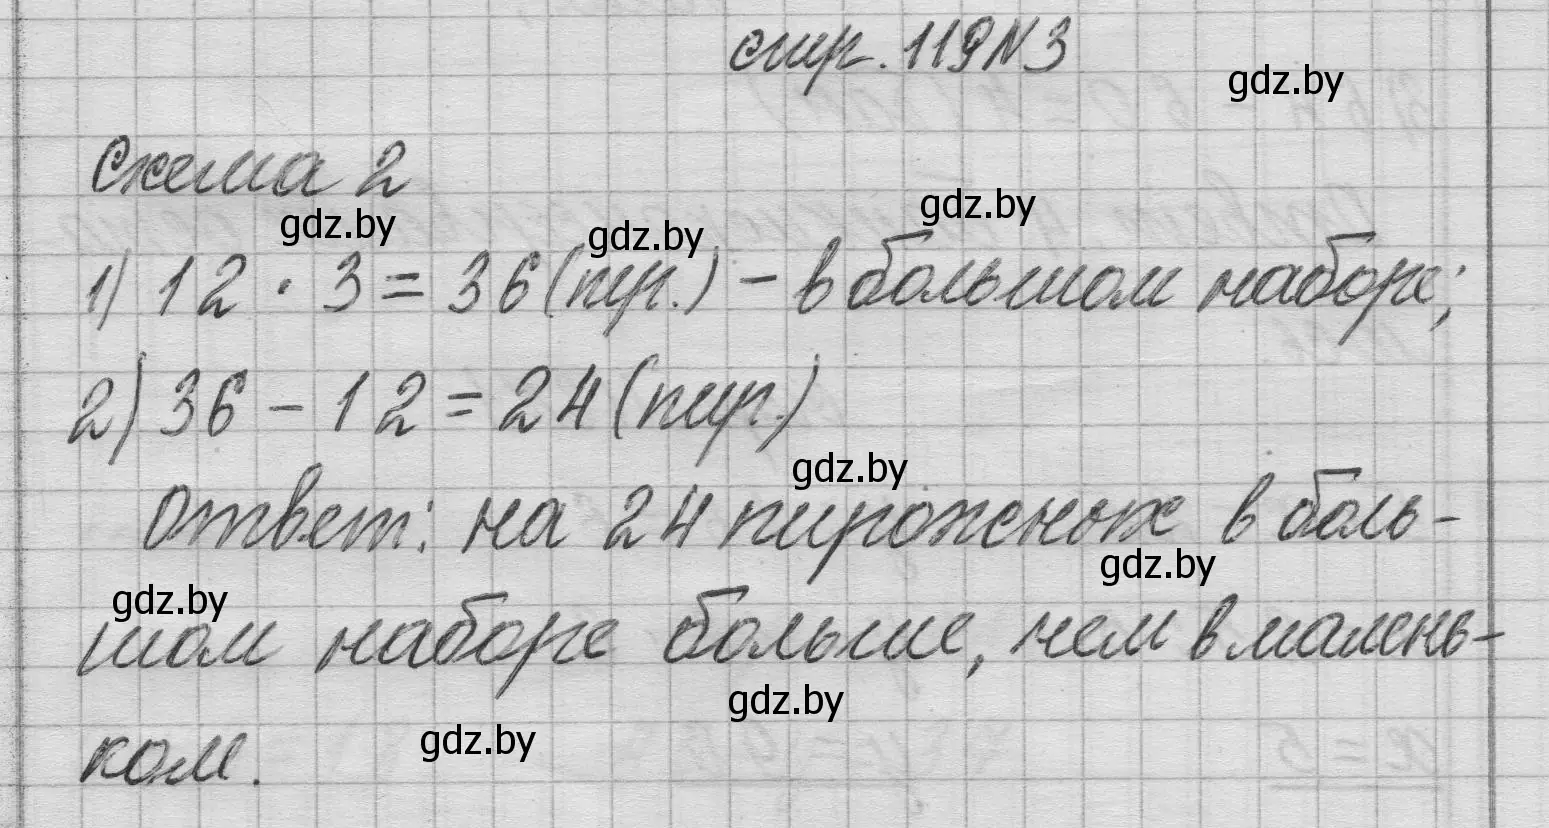 стр. 119 N 3
gdz.by
Схема 2
gdz.by gdz.by gdz.by
1) 12 · 3 = 36 (пир.) - в большом наборе;
2) 36 - 12 = 24 (пир.)
gdz.by
Ответ: на 24 пирожных в боль-
gdz.by gdz.by
шом наборе больше, чем в малень-
gdz.by
gdz.by
ком.